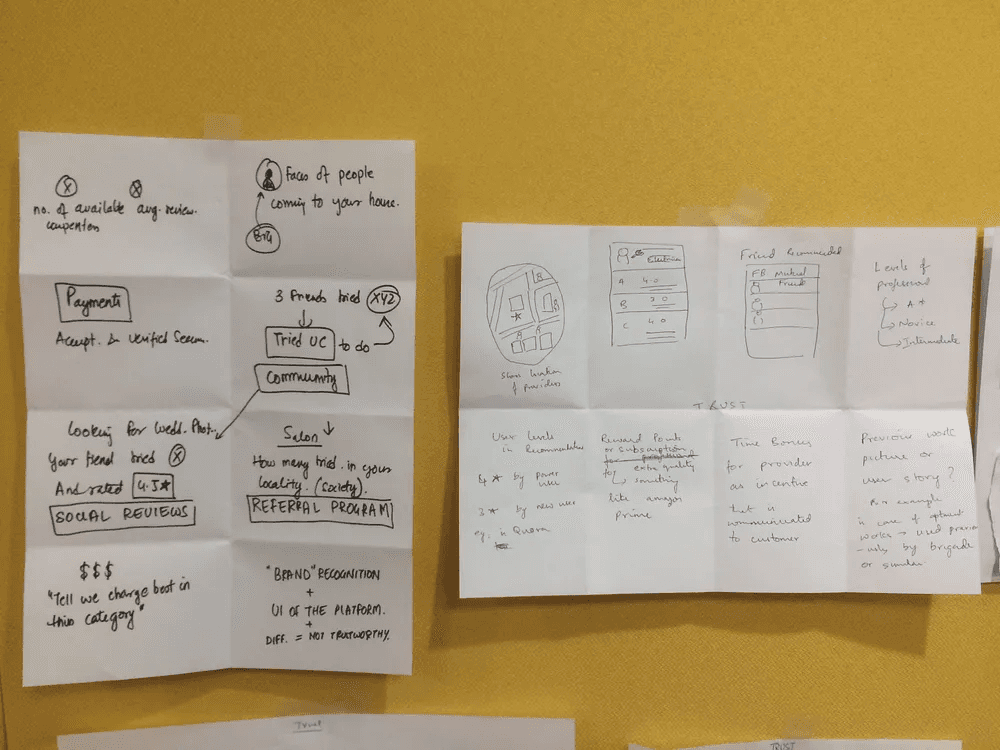 X
X
no. of available
avg. review.
Faces of people
coming to your house.
Payments
3 friends tried XYZ
Tried UC to do
Community
Looking for Wedd. Phot..
your friend tried X
And rated 4.5★
SOCIAL REVIEWS
Salon
How many tried in your
locality. (society).
REFERRAL PROGRAM
$$$
"Tell we charge best in
this category"
"BRAND" RECOGNITION
+
UI OF THE PLATFORM.
+
DIFF. = NOT TRUSTWORTHY.
Show location
of providers
A 4.0
B 3.0
C 4.0
Friend Recommended
FB Mutual
Friends
Levels of
professional
A+
Novice
Intermediate
TRUST
User levels
in Recommendation
4★ by power
user
3★ by new user
eg. in Quora
Reward Points
or subscription
for extra quality
something
like amazon
Prime
Time Bonus
for provider
as incentive
that is
communicated
to customer
Previous work
picture or
user story?
For example
in case of
works → used
by brigade
or similar
Trust
TRUST